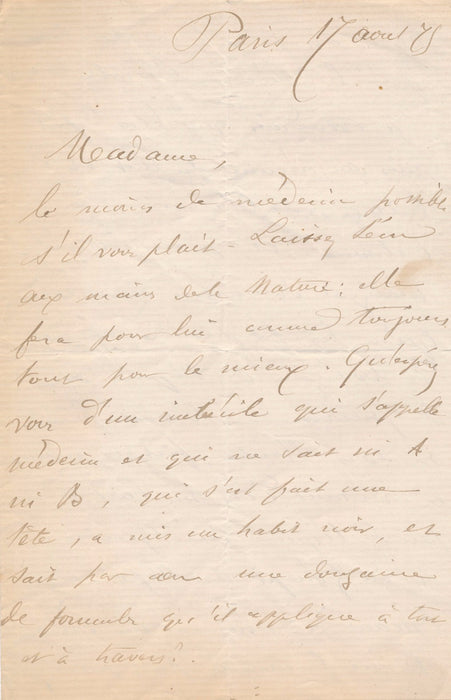 Paris 17 aout 75
Madame,
le moins de médecin possible
s'il vous plait - Laissez Léon
aux mains de la Nature ; elle
fera pour lui comme toujours
tout pour le mieux. Qu'espérez
vous d'un imbécile qui s'appelle
médecin et qui ne sait ni A
ni B, qui s'est fait une
tête, a mis un habit noir, et
sait par cœur une douzaine
de formules qu'il applique à tort
et à travers ?